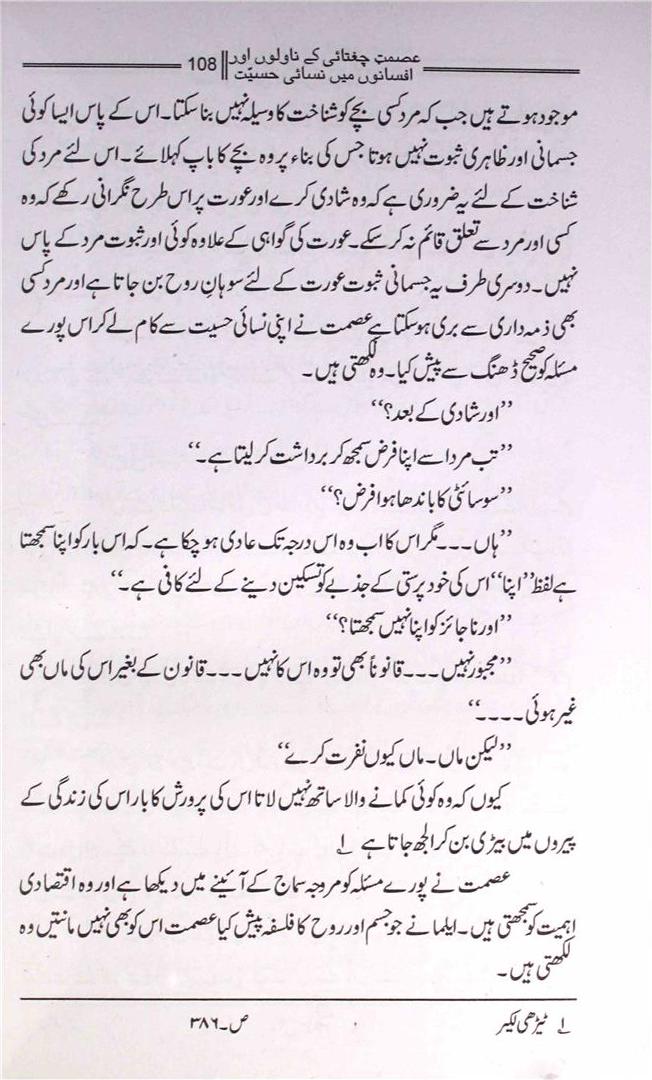 عصمت چغتائی کے ناولوں اور
افسانوں میں نسائی حسیّت 108
موجود ہوتے ہیں جب کہ مرد کسی بچے کو شناخت کا وسیلہ نہیں بنا سکتا۔ اس کے پاس ایسا کوئی
جسمانی اور ظاہری ثبوت نہیں ہوتا جس کی بناء پر وہ بچے کا باپ کہلائے۔ اس لئے مرد کی
شناخت کے لئے یہ ضروری ہے کہ وہ شادی کرے اور عورت پر اس طرح نگرانی رکھے کہ وہ
کسی اور مرد سے تعلق قائم نہ کر سکے۔ عورت کی گواہی کے علاوہ کوئی اور ثبوت مرد کے پاس
نہیں۔ دوسری طرف یہ جسمانی ثبوت عورت کے لئے سوہانِ روح بن جاتا ہے اور مرد کسی
بھی ذمہ داری سے بری ہو سکتا ہے عصمت نے اپنی نسائی حسیت سے کام لے کر اس پورے
مسئلہ کو صحیح ڈھنگ سے پیش کیا۔ وہ لکھتی ہیں۔
”اور شادی کے بعد؟“
”تب مرد اسے اپنا فرض سمجھ کر برداشت کر لیتا ہے۔“
”سوسائٹی کا باندھا ہوا فرض؟“
”ہاں۔۔۔ مگر اس کا اب وہ اس درجہ تک عادی ہو چکا ہے۔ کہ اس بار کو اپنا سمجھتا
ہے لفظ ”اپنا“ اس کی خود پرستی کے جذبے کو تسکین دینے کے لئے کافی ہے۔“
”اور ناجائز کو اپنا نہیں سمجھتا؟“
”مجبور نہیں۔۔۔ قانوناً بھی تو وہ اس کا نہیں۔۔۔ قانون کے بغیر اس کی ماں بھی
غیر ہوئی۔۔۔۔“
”لیکن ماں۔ ماں کیوں نفرت کرے“
کیوں کہ وہ کوئی کمانے والا ساتھ نہیں لاتا اس کی پرورش کا بار اس کی زندگی کے
پیروں میں بیڑی بن کر الجھ جاتا ہے ۱؎
عصمت نے پورے مسئلہ کو مروجہ سماج کے آئینے میں دیکھا ہے اور وہ اقتصادی
اہمیت کو سمجھتی ہیں۔ ایلما نے جو جسم اور روح کا فلسفہ پیش کیا عصمت اس کو بھی نہیں مانتیں وہ
لکھتی ہیں۔
۱؎ ٹیڑھی لکیر ص۔۳۸۶